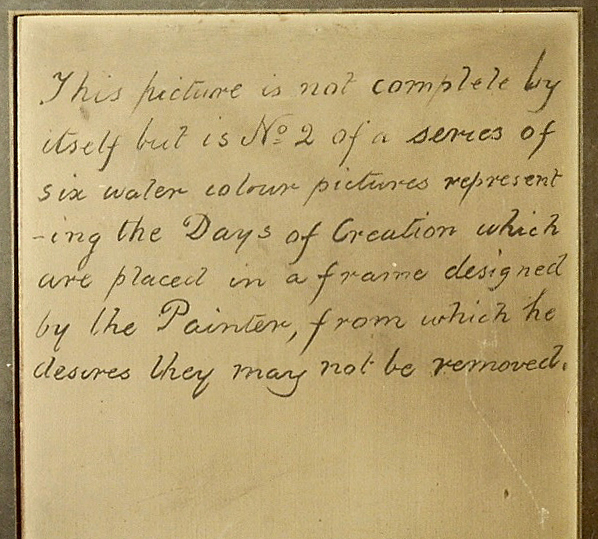 This picture is not complete by
itself but is Nº 2 of a series of
six water colour pictures represent
-ing the Days of Creation which
are placed in a frame designed
by the Painter, from which he
desires they may not be removed.